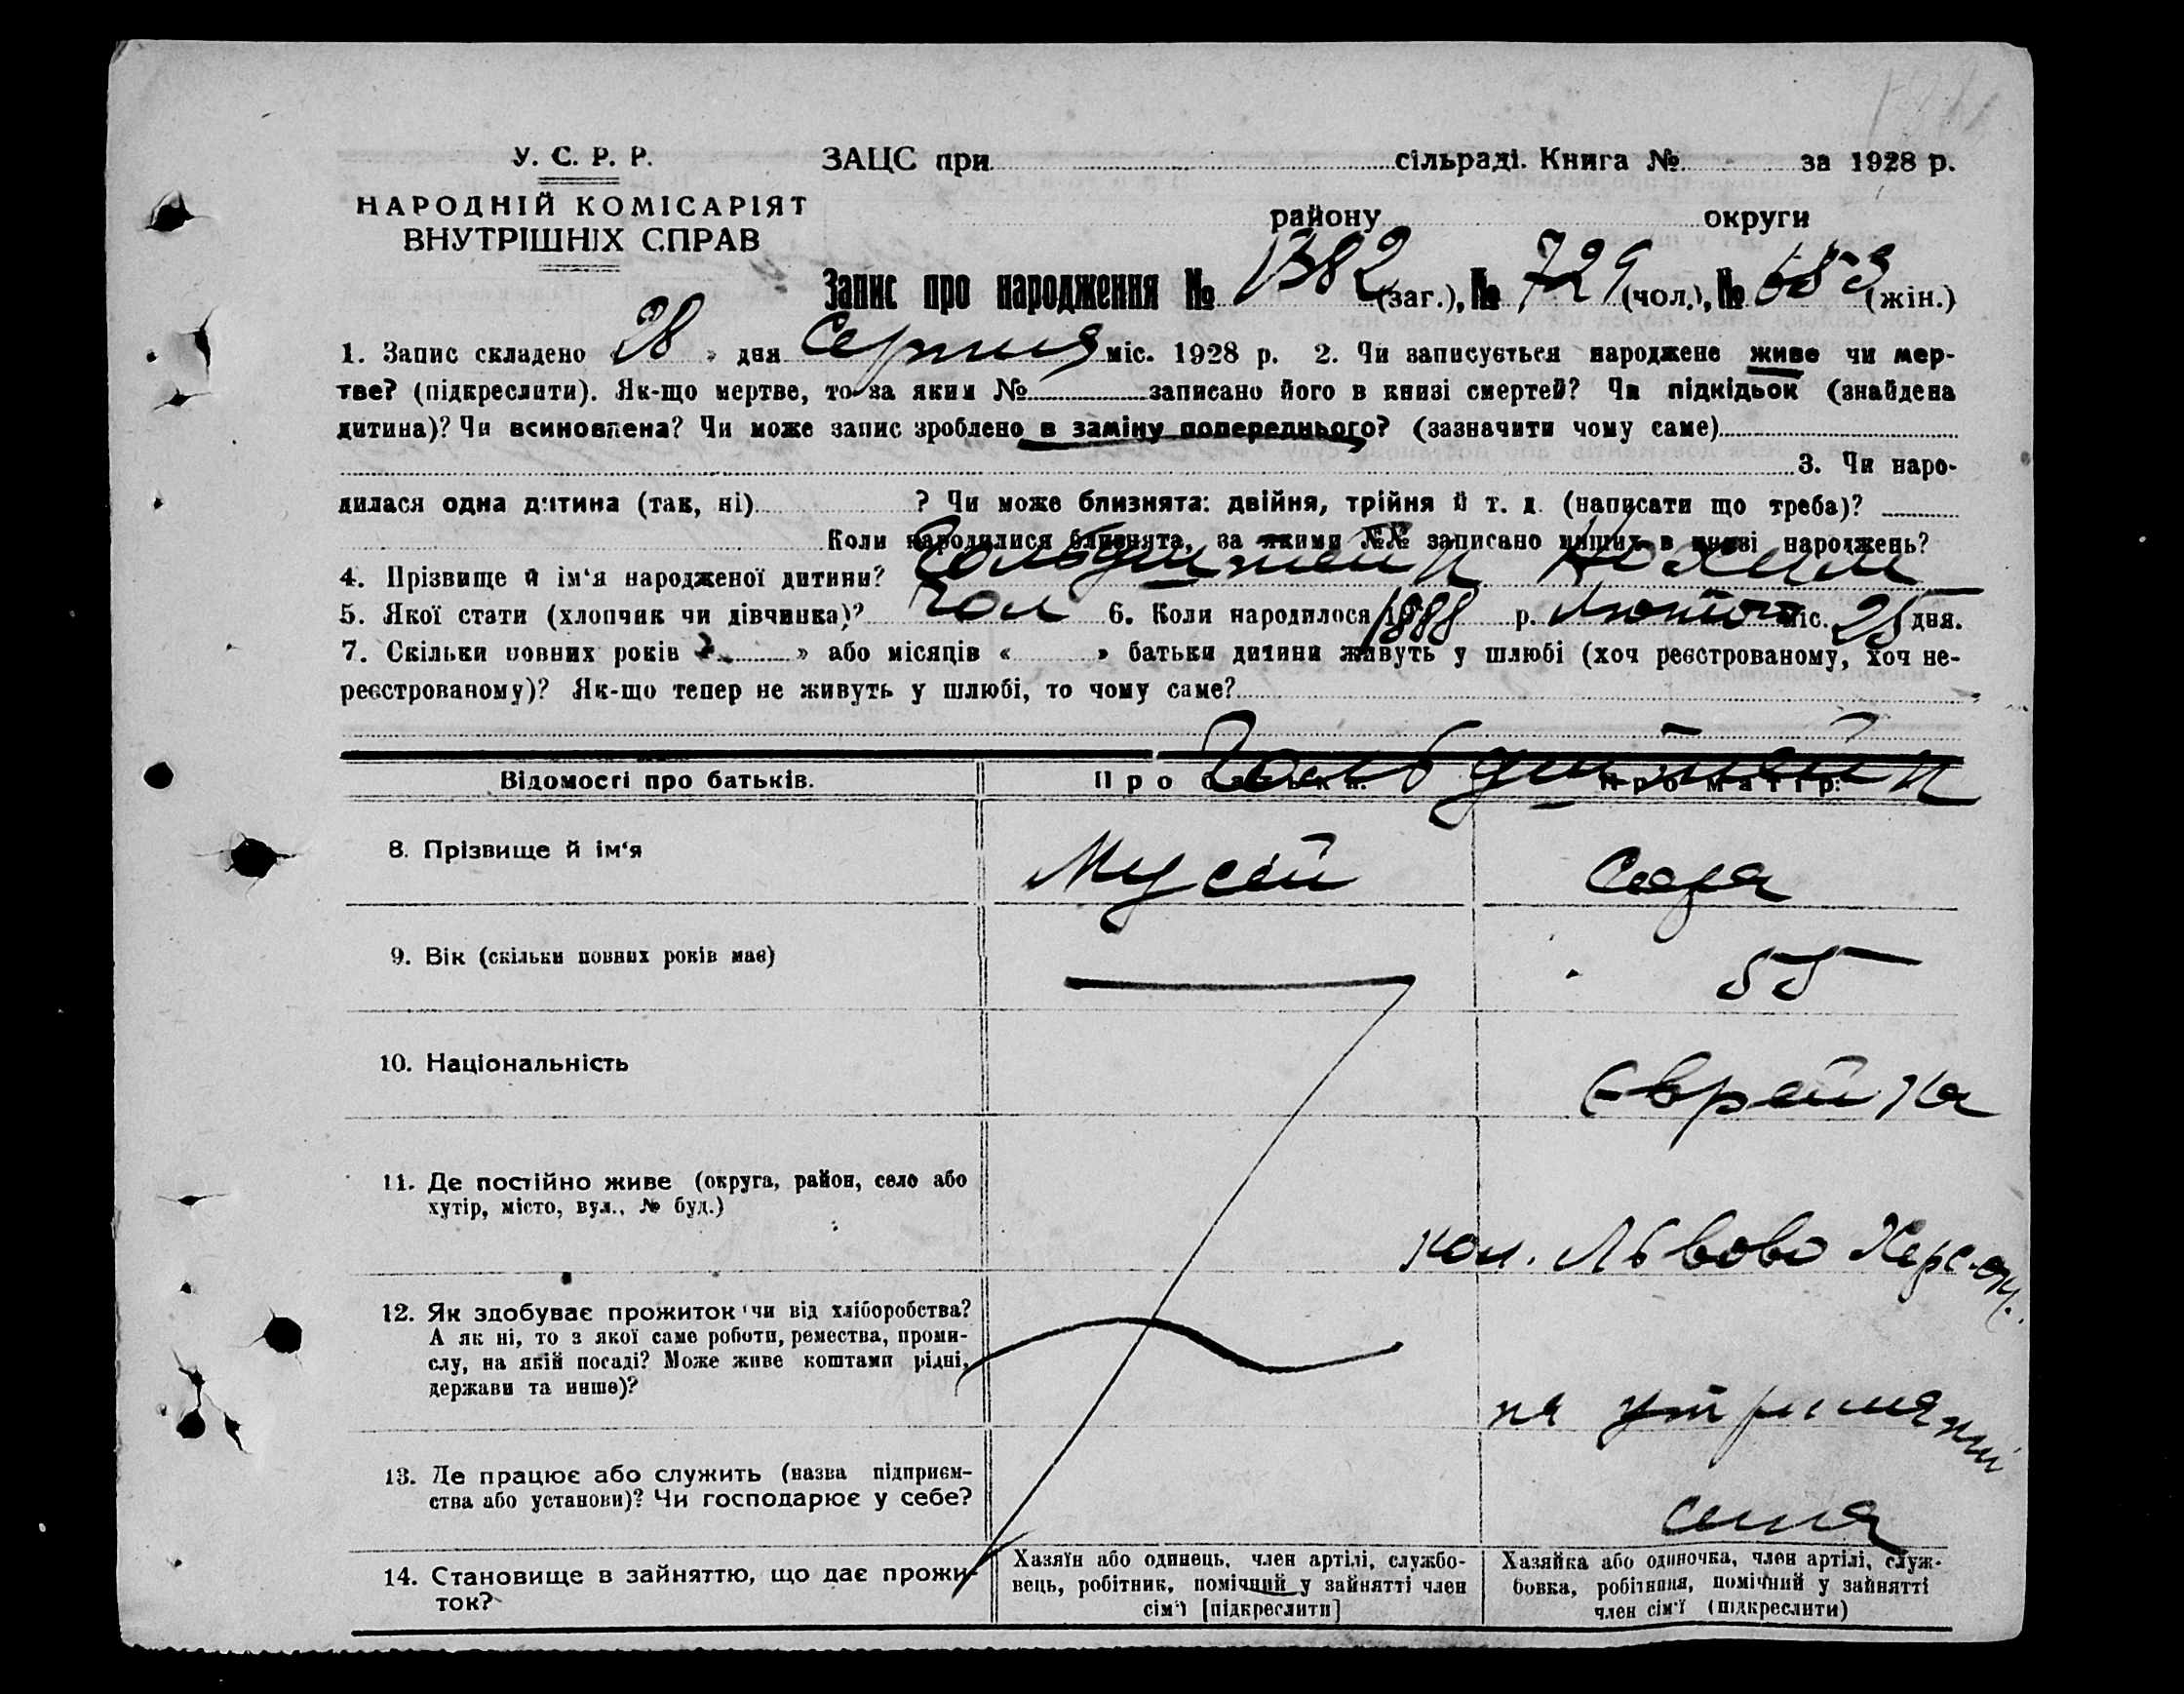 У. С. Р. Р.
НАРОДНІЙ КОМІСАРІЯТ
ВНУТРІШНІХ СПРАВ
ЗАЦС при сільраді. Книга № за 1928 р.
району округи
Запис про народження № 1382 (заг.), № 729 (чол.), № 653 (жін.)
1. Запис складено « 28 » дня Серпня міс. 1928 р. 2. Чи записується народжене живе чи мер-
тве? (підкреслити). Як-що мертве, то за яким № записано його в книзі смертей? Чи підкідьок (знайдена
дитина)? Чи всиновлена? Чи може запис зроблено в заміну попереднього? (зазначити чому саме)
3. Чи наро-
дилася одна дитина (так, ні) ? Чи може близнята: двійня, трійня й т. д. (написати що треба)?
Коли народилися близнята, за якими №№ записано инших в книзі народжень?
4. Прізвище й ім'я народженої дитини? Гольдштейн
5. Якої стати (хлопчик чи дівчинка)? чол 6. Коли народилося 1888 р. Лютого міс. 25 дня.
7. Скільки повних років « » або місяців « » батьки дитини живуть у шлюбі (хоч реєстрованому, хоч не-
реєстрованому)? Як-що тепер не живуть у шлюбі, то чому саме?
Гольдштейн
Відомості про батьків. Про батька. Про матір.
8. Прізвище й ім'я Мусій Сара
9. Вік (скільки повних років має) 55
10. Національність Єврейка
11. Де постійно живе (округа, район, село або
хутір, місто, вул., № буд.)
кол. Львово Херс. ок.
12. Як здобуває прожиток чи від хліборобства?
А як ні, то з якої саме роботи, ремества, проми-
слу, на якій посаді? Може живе коштами рідні,
держави та инше)?
на утриманні
13. Де працює або служить (назва підприєм-
ства або установи)? Чи господарює у себе?
сина
14. Становище в зайняттю, що дає прожи-
ток?
Хазяїн або одинець, член артілі, службо-
вець, робітник, помічний у зайнятті член
сім'ї [підкреслити]
Хазяйка або одиночка, член артілі, служ-
бовка, робітниця, помічний у зайнятті
член сім'ї (підкреслити)